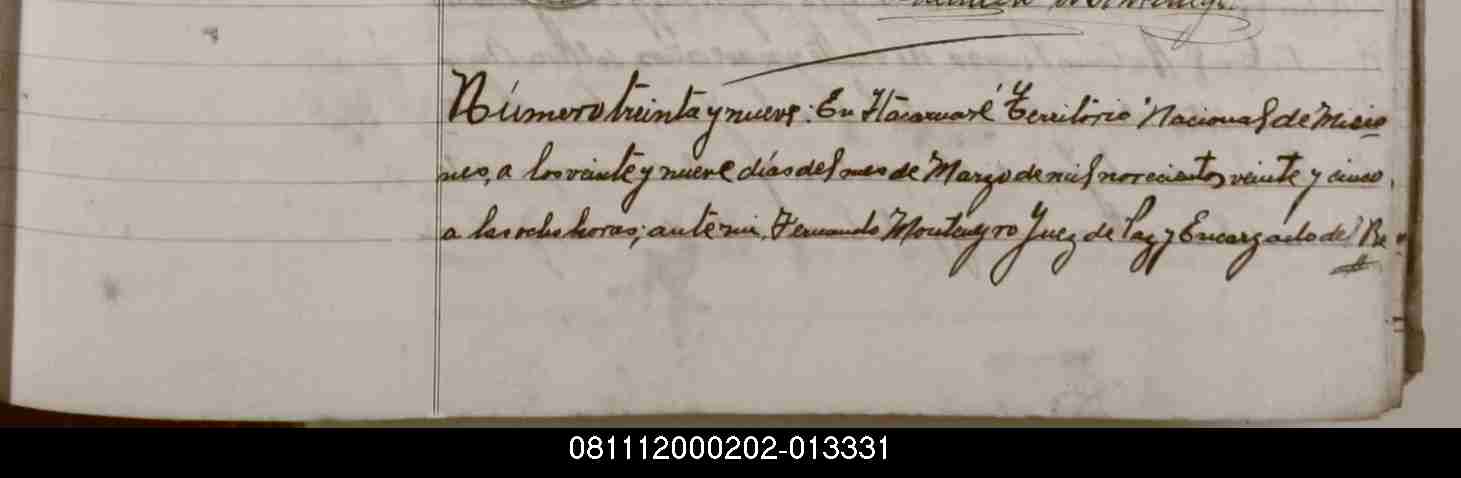 Número treinta y nueve: En Itacaruaré Territorio Nacional de Misio
nes, a los veinte y nueve días del mes de Marzo de mil novecientos veinte y cinco,
a las ocho horas; ante mi, Fernando Montenegro Juez de Paz y Encargado del Re
081112000202-013331